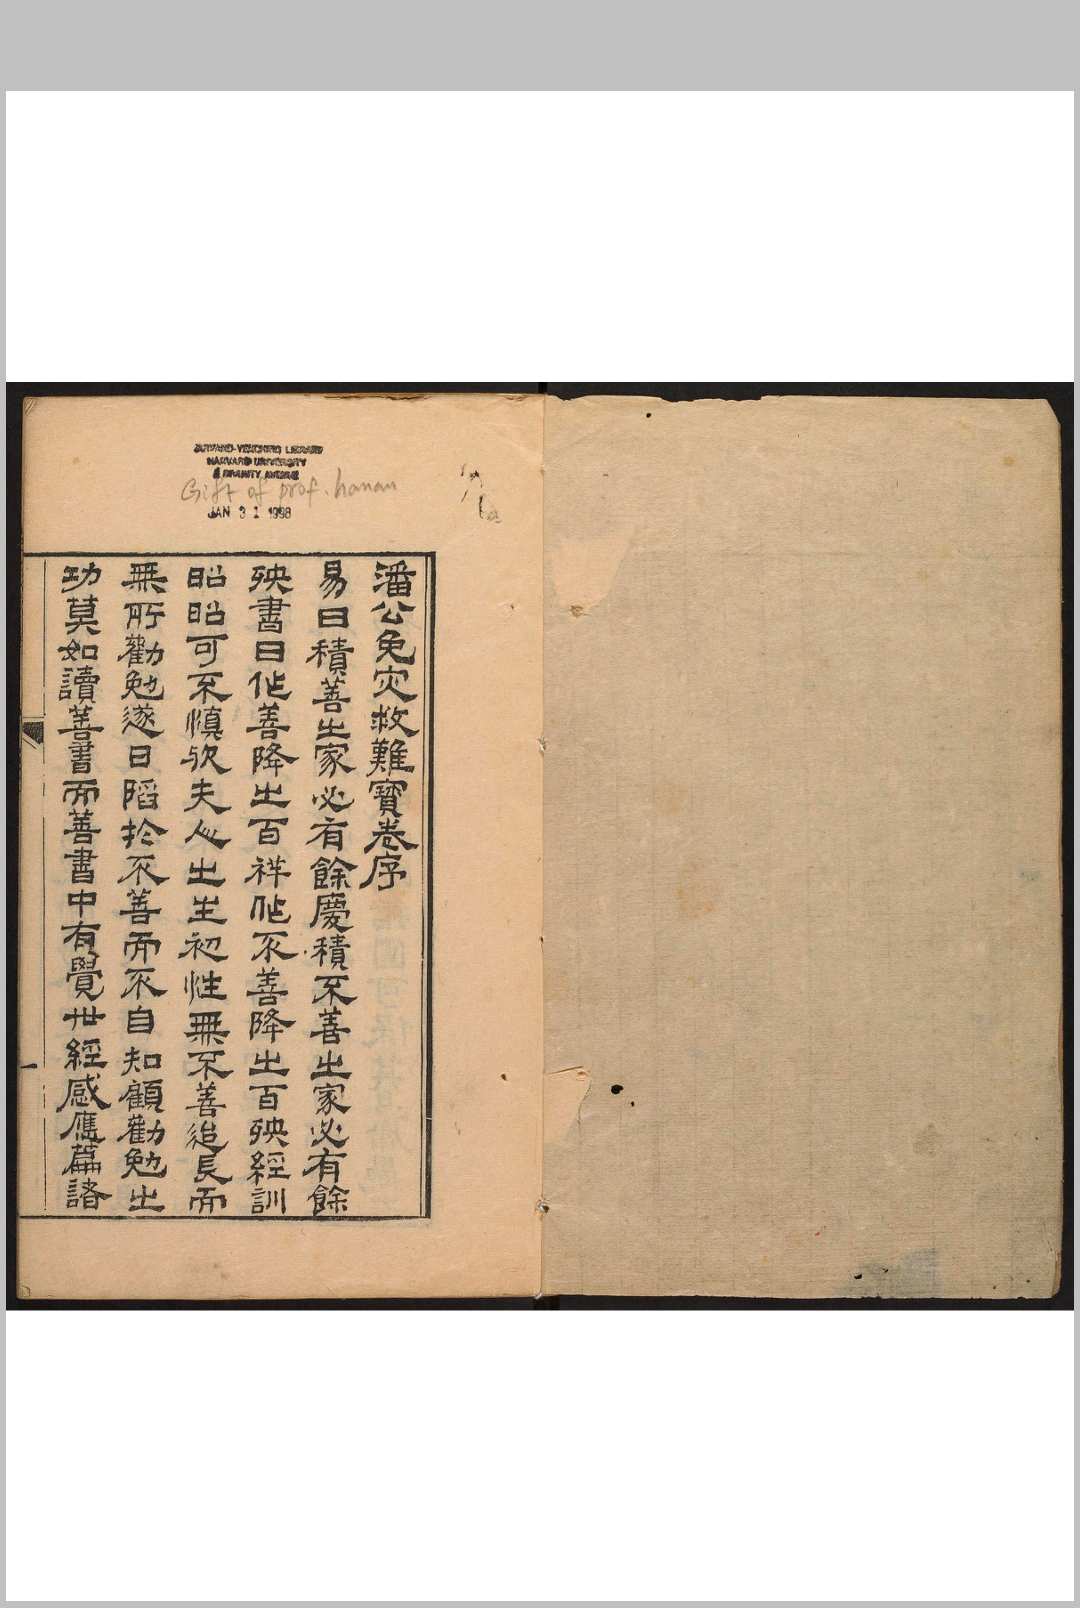 HARVARD-YENCHING LIBRARY
HARVARD UNIVERSITY
2 DIVINITY AVENUE
Gift of prof. hanan
JAN 31 1998
潘公免灾救難寶卷序
易曰積善之家必有餘慶積不善之家必有餘
殃書曰作善降之百祥作不善降之百殃經訓
昭昭可不慎歟夫人之生初性無不善迨長而
無所勸勉遂日陷於不善而不自知顧勸勉之
功莫如讀善書而善書中有覺世經感應篇諸
一